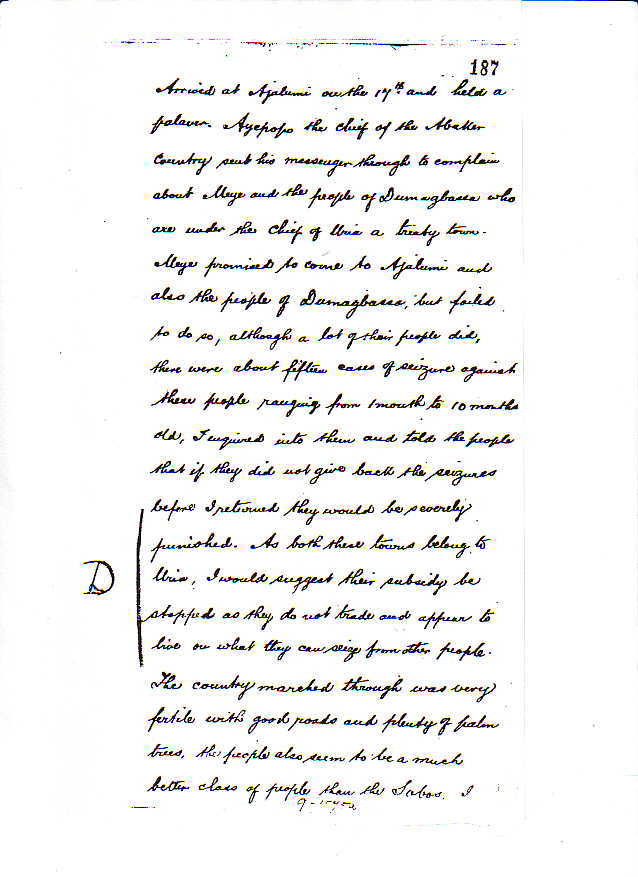 187
Arrived at Ajalumi on the 17th and held a
palaver. Ayepopo the chief of the Abaker
Country sent his messenger through to complain
about Meye and the people of Dumagbassa who
are under the Chief of Uria a treaty town.
Meye promised to come to Ajalumi and
also the people of Dumagbassa, but failed
to do so, although a lot of their people did,
there were about fifteen cases of seizure against
these people ranging from 1 month to 10 months
old, I enquired into them and told the people
that if they did not give back the seizures
before I returned they would be severely
punished. As both these towns belong to
D
Uria, I would suggest their subsidy be
stopped as they do not trade and appear to
live on what they can seize from other people.
The country marched through was very
fertile with good roads and plenty of palm
trees, the people also seem to be a much
better class of people than the Sobos. I